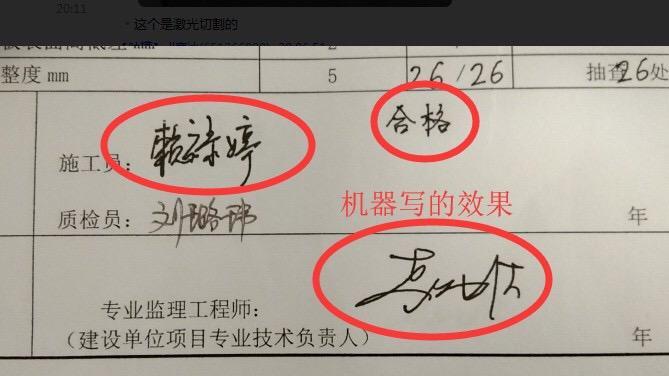 20:11
· 这个是激光切割的
整度 mm 5 26/26 抽查26处
合格
施工员：赖禄婷
机器写的效果
质检员：刘璐玮 年
专业监理工程师：
（建设单位项目专业技术负责人） 年